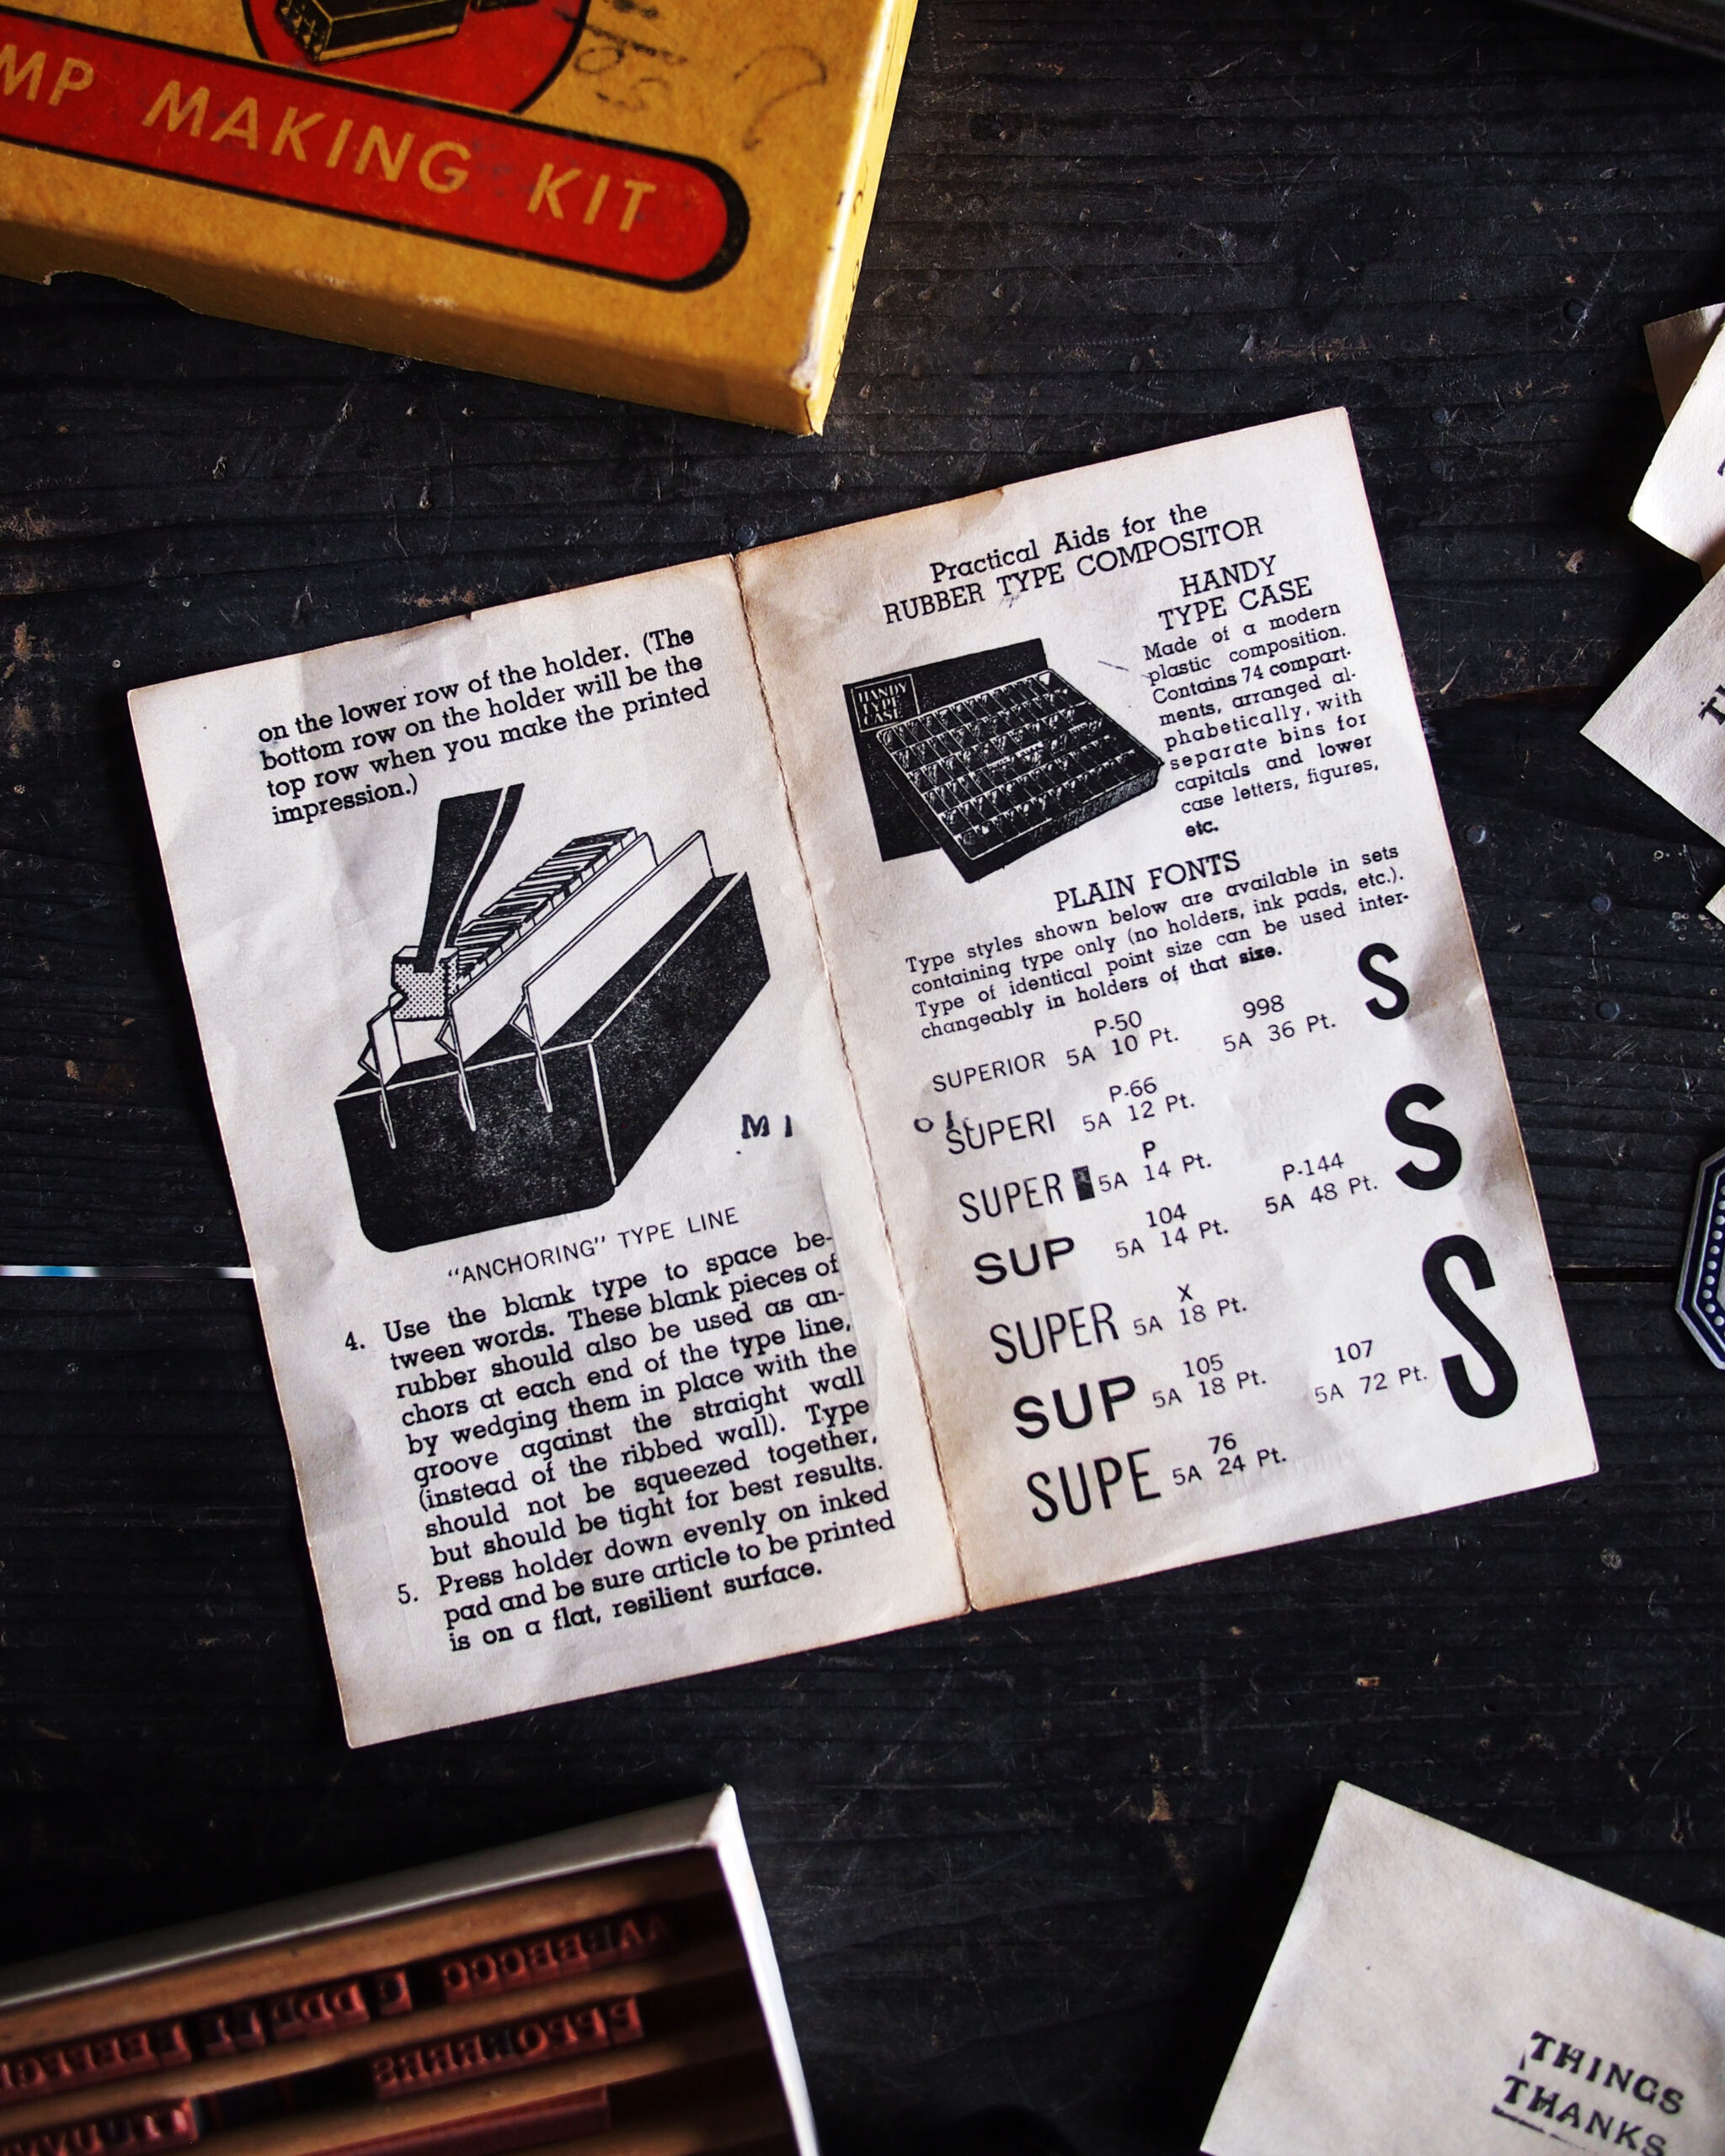 MP MAKING KIT
on the lower row of the holder. (The
bottom row on the holder will be the
top row when you make the printed
impression.)
M I
"ANCHORING" TYPE LINE
4. Use the blank type to space be-
tween words. These blank pieces of
rubber should also be used as an-
chors at each end of the type line,
by wedging them in place with the
groove against the straight wall
(instead of the ribbed wall). Type
should not be squeezed together,
but should be tight for best results.
5. Press holder down evenly on inked
pad and be sure article to be printed
is on a flat, resilient surface.
Practical Aids for the
RUBBER TYPE COMPOSITOR
HANDY
TYPE CASE
HANDY
TYPE
CASE
Made of a modern
plastic composition.
Contains 74 compart-
ments, arranged al-
phabetically, with
separate bins for
capitals and lower
case letters, figures,
etc.
PLAIN FONTS
Type styles shown below are available in sets
containing type only (no holders, ink pads, etc.).
Type of identical point size can be used inter-
changeably in holders of that size.
P-50
SUPERIOR 5A 10 Pt.
998
5A 36 Pt.
S
P-66
SUPERI 5A 12 Pt.
P
SUPER 5A 14 Pt.
P-144
5A 48 Pt.
S
104
SUP 5A 14 Pt.
X
SUPER 5A 18 Pt.
105
SUP 5A 18 Pt.
107
5A 72 Pt.
S
76
SUPE 5A 24 Pt.
THINGS
THANKS